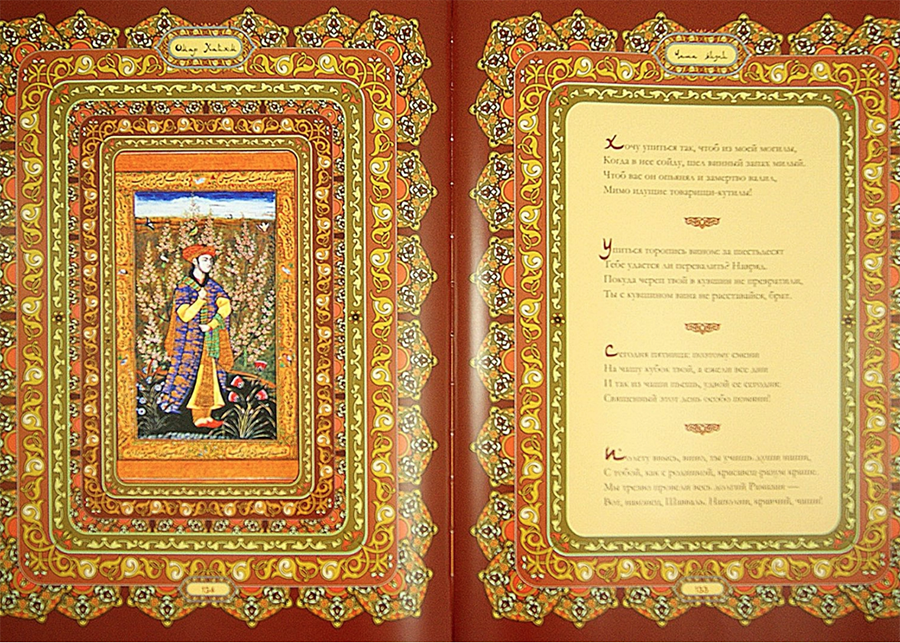 Омар Хайям
134
Чаша
Хочу упиться так, чтоб из моей могилы,
Когда в нее сойду, шел винный запах милый.
Чтоб вас он опьянял и замертво валил,
Мимо идущие товарищи-кутилы!
Упиться торопись вином: за шестьдесят
Тебе удастся ли перевалить? Навряд.
Покуда череп твой в кувшин не превратили,
Ты с кувшином вина не расставайся, брат.
Сегодня пятница: поэтому смени
На чашу кубок твой, а ежели все дни
И так из чаши пьешь, удвой ее сегодня:
Священный этот день особо помяни!
ввысь, вино, ты учишь души наши,
С тобой, как с родинкой, красавец разум краше.
Мы трезво провели весь долгий Рамазан —
Вот, наконец, Шавваль. Наполни, кравчий, чаши!